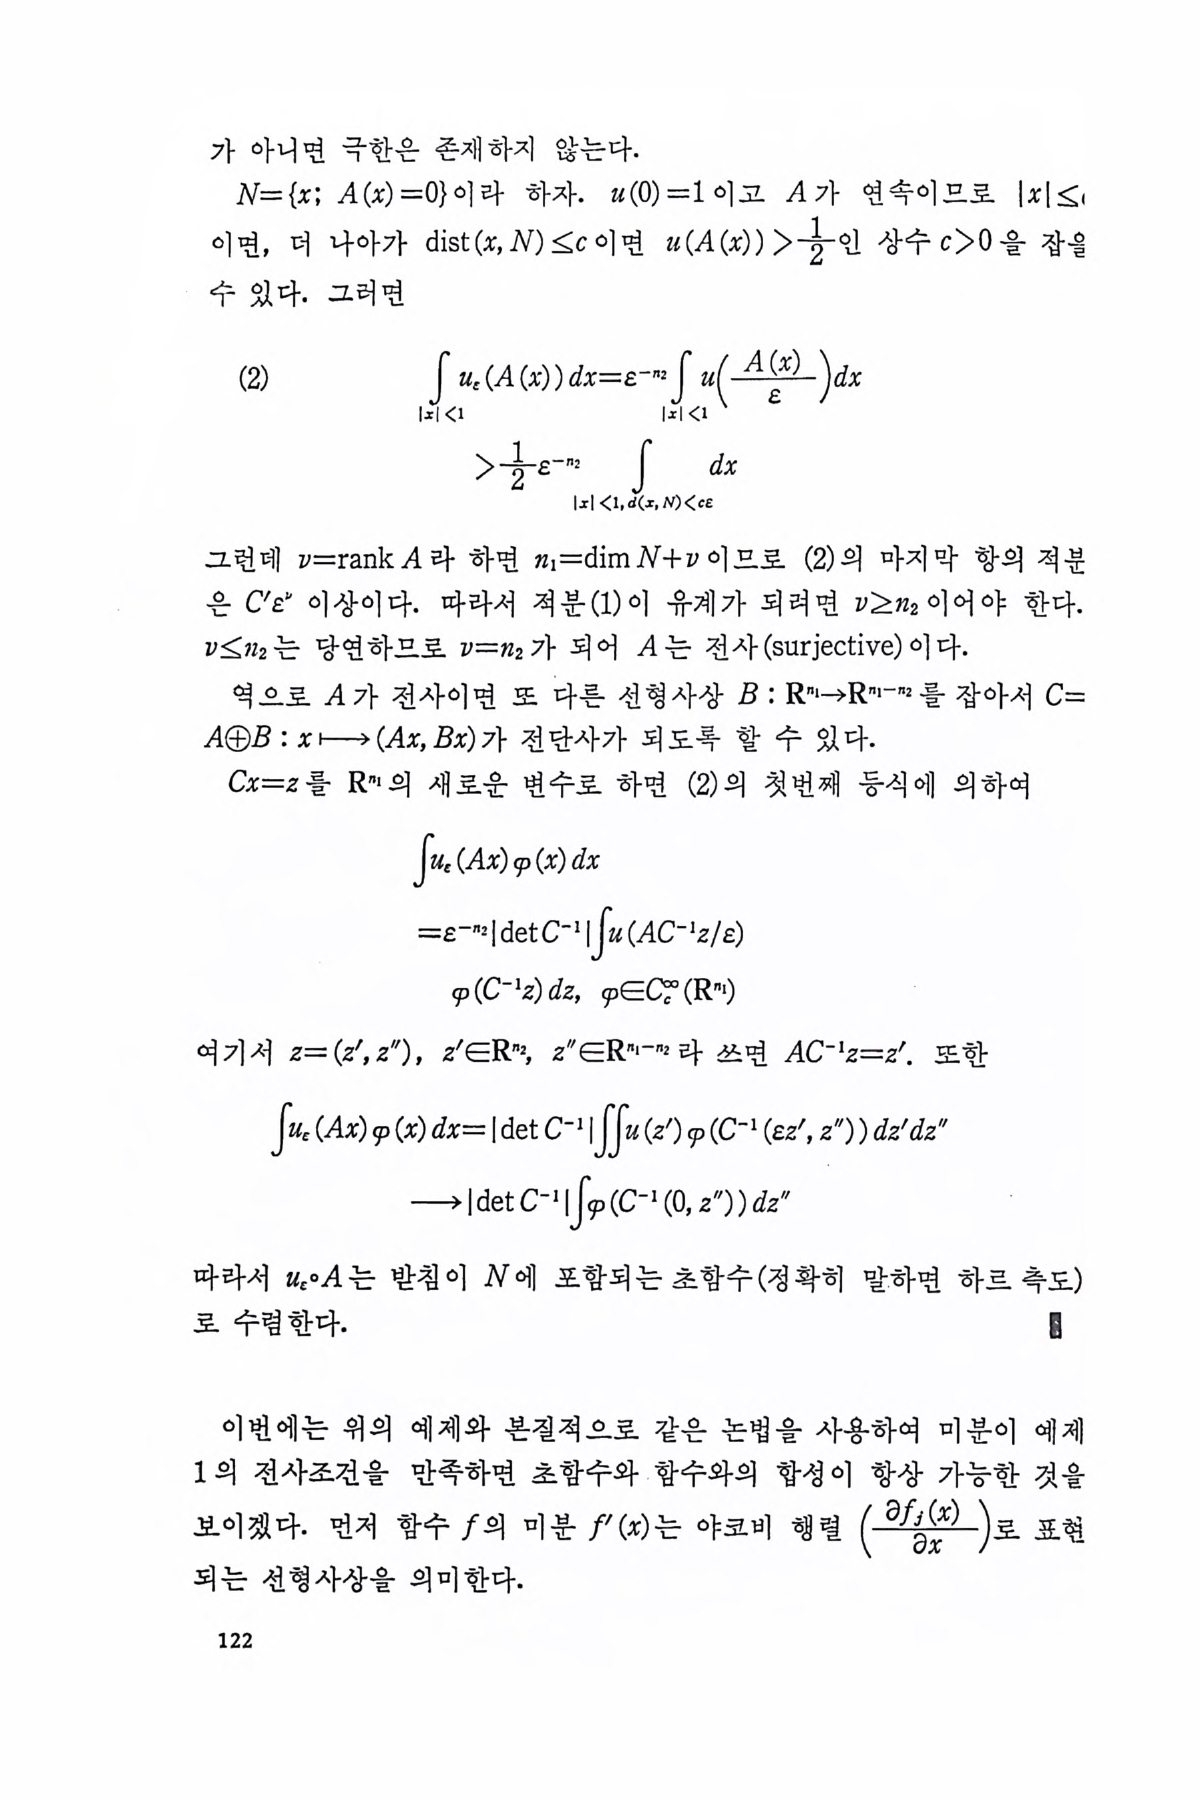 가 아니면 극한은 존재하지 않는다.
N={x; A(x)=0}이라 하자. u(0)=1이고 A가 연속이므로 |x|≤
이면, 더 나아가 dist(x, N)≤c이면 u(A(x))>1/2인 상수 c>0을 잡을
수 있다. 그러면
(2) ∫_{|x|<1} u_ε(A(x))dx=ε^{-n₂}∫_{|x|<1} u(A(x)/ε)dx
>1/2 ε^{-n₂} ∫_{|x|<1, d(x, N)<cε} dx
그런데 ν=rank A라 하면 n₁=dim N+ν이므로 (2)의 마지막 항의 적분
은 C′ε^ν 이상이다. 따라서 적분(1)이 유계가 되려면 ν≥n₂이어야 한다.
ν≤n₂는 당연하므로 ν=n₂가 되어 A는 전사(surjective)이다.
역으로 A가 전사이면 또 다른 선형사상 B : R^{n₁}→R^{n₁-n₂}를 잡아서 C=
A⊕B : x⟼(Ax, Bx)가 전단사가 되도록 할 수 있다.
Cx=z를 R^{n₁}의 새로운 변수로 하면 (2)의 첫번째 등식에 의하여
∫u_ε(Ax)φ(x)dx
=ε^{-n₂}|det C^{-1}|∫u(AC^{-1}z/ε)
φ(C^{-1}z)dz, φ∈C_c^∞(R^{n₁})
여기서 z=(z′, z″), z′∈R^{n₂}, z″∈R^{n₁-n₂}라 쓰면 AC^{-1}z=z′. 또한
∫u_ε(Ax)φ(x)dx=|det C^{-1}|∬u(z′)φ(C^{-1}(εz′, z″))dz′dz″
⟶|det C^{-1}|∫φ(C^{-1}(0, z″))dz″
따라서 u_ε∘A는 받침이 N에 포함되는 초함수(정확히 말하면 하르 측도)
로 수렴한다.
이번에는 위의 예제와 본질적으로 같은 논법을 사용하여 미분이 예제
1의 전사조건을 만족하면 초함수와 함수와의 합성이 항상 가능한 것을
보이겠다. 먼저 함수 f의 미분 f′(x)는 야코비 행렬 (∂f_j(x)/∂x)로 표현
되는 선형사상을 의미한다.
122